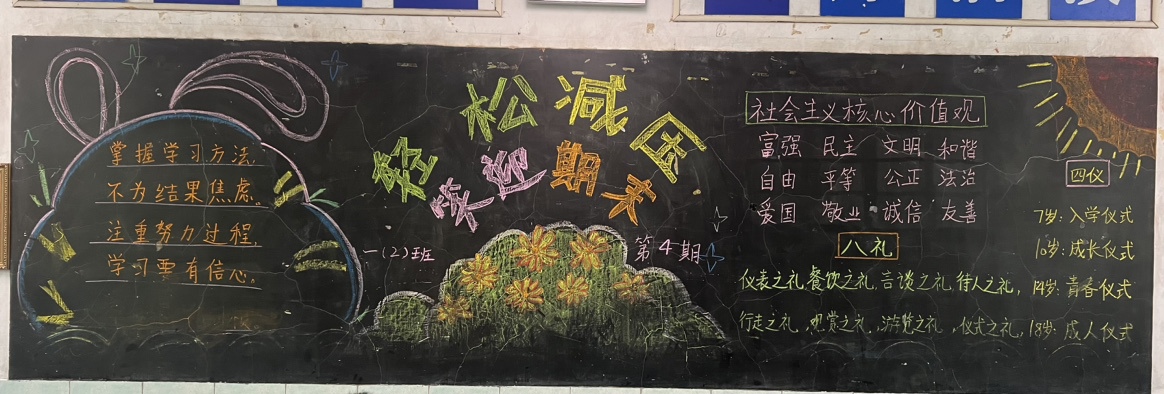 掌握学习方法,
不为结果焦虑。
注重努力过程,
学习要有信心。
轻松减压
笑迎期末
一(2)班
第4期
社会主义核心价值观
富强 民主 文明 和谐
自由 平等 公正 法治
爱国 敬业 诚信 友善
八礼
仪表之礼,餐饮之礼,言谈之礼,待人之礼,
行走之礼,观赏之礼,游览之礼,仪式之礼,
四仪
7岁:入学仪式
10岁:成长仪式
14岁:青春仪式
18岁:成人仪式